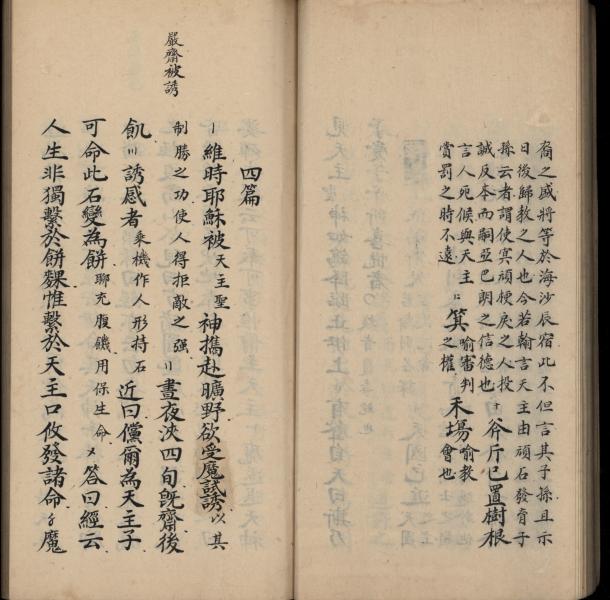 裔之盛將等於海沙辰宿此不但言其子孫且示
日後歸教之人也今若翰言天主由頑石發育子
孫云者謂使冥頑梗戾之人投
誠反本而嗣亞巴朗之信德也 斧斤已置樹根
言人死候與天主
賞罰之時不遠 箕 喻審判之權 禾場 喻教會也
嚴齋被誘
四篇
〡維時耶穌被天主聖神攜赴曠野欲受魔試誘以其
制勝之功使人得拒敵之强〢晝夜浹四旬既齋後
飢〣誘感者乘機作人形持石近曰儻爾為天主子
可命此石變為餅聊充腹饑用保生命〤答曰經云
人生非獨繫於餅餜惟繫於天主口攸發諸命〥魔